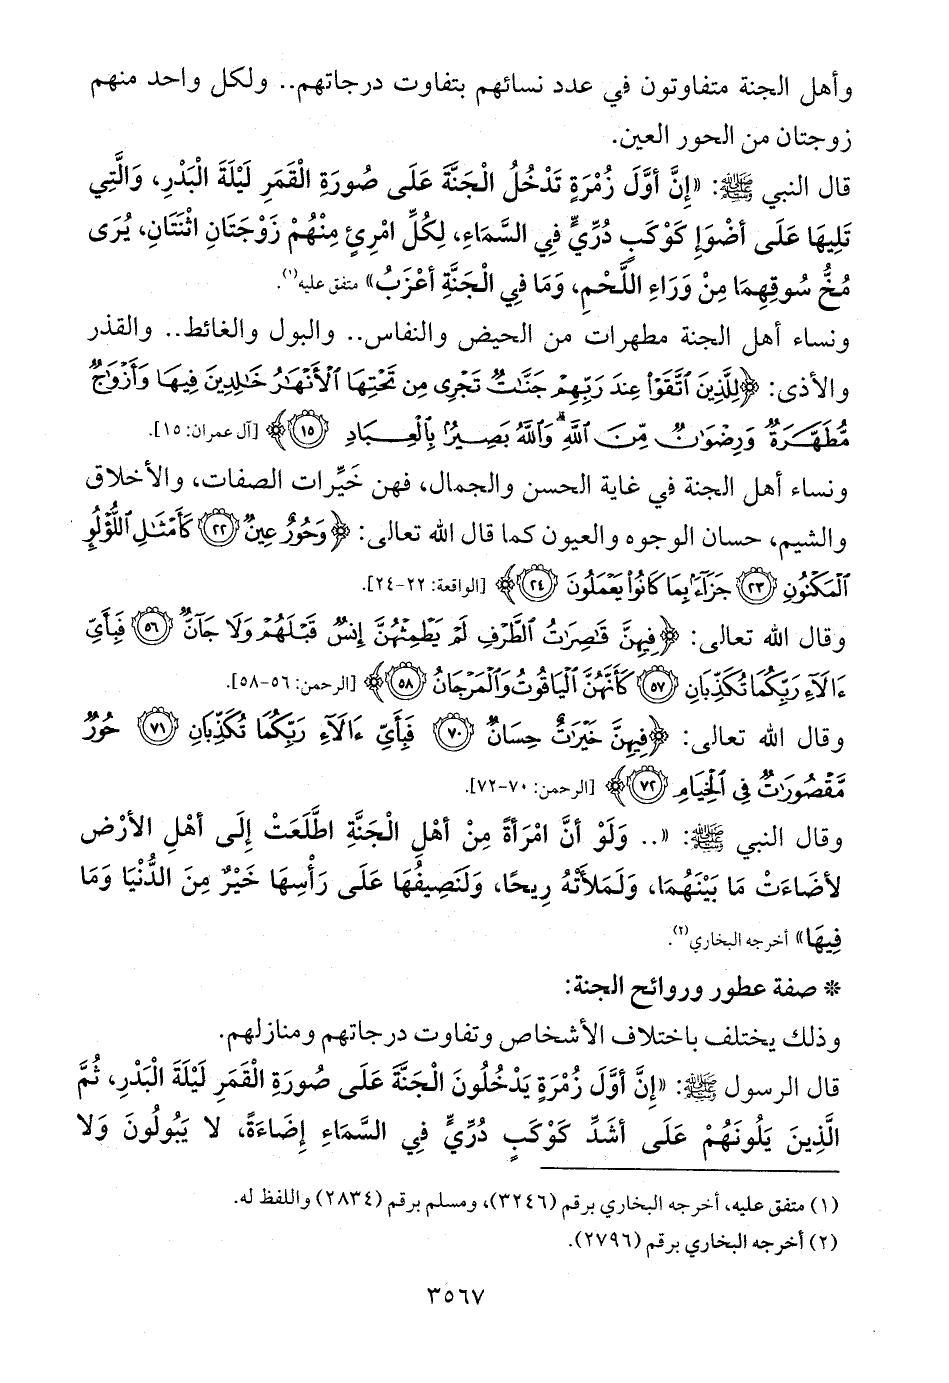 وأهل الجنة متفاوتون في عدد نسائهم بتفاوت درجاتهم.. ولكل واحد منهم
زوجتان من الحور العين.
قال النبي ﷺ: «إِنَّ أَوَّلَ زُمْرَةٍ تَدْخُلُ الْجَنَّةَ عَلَى صُورَةِ الْقَمَرِ لَيْلَةَ الْبَدْرِ، وَالَّتِي
تَلِيهَا عَلَى أَضْوَإِ كَوْكَبٍ دُرِّيٍّ فِي السَّمَاءِ، لِكُلِّ امْرِئٍ مِنْهُمْ زَوْجَتَانِ اثْنَتَانِ، يُرَى
مُخُّ سُوقِهِمَا مِنْ وَرَاءِ اللَّحْمِ، وَمَا فِي الْجَنَّةِ أَعْزَبُ» متفق عليه(١).
ونساء أهل الجنة مطهرات من الحيض والنفاس.. والبول والغائط.. والقذر
والأذى: ﴿لِلَّذِينَ ٱتَّقَوۡاْ عِندَ رَبِّهِمۡ جَنَّٰتٞ تَجۡرِي مِن تَحۡتِهَا ٱلۡأَنۡهَٰرُ خَٰلِدِينَ فِيهَا وَأَزۡوَٰجٞ
مُّطَهَّرَةٞ وَرِضۡوَٰنٞ مِّنَ ٱللَّهِۗ وَٱللَّهُ بَصِيرُۢ بِٱلۡعِبَادِ ١٥﴾ [آل عمران: ١٥].
ونساء أهل الجنة في غاية الحسن والجمال، فهن خَيِّرات الصفات، والأخلاق
والشيم، حسان الوجوه والعيون كما قال الله تعالى: ﴿وَحُورٌ عِينٞ ٢٢ كَأَمۡثَٰلِ ٱللُّؤۡلُوِٕ
ٱلۡمَكۡنُونِ ٢٣ جَزَآءَۢ بِمَا كَانُواْ يَعۡمَلُونَ ٢٤﴾ [الواقعة: ٢٢-٢٤].
وقال الله تعالى: ﴿فِيهِنَّ قَٰصِرَٰتُ ٱلطَّرۡفِ لَمۡ يَطۡمِثۡهُنَّ إِنسٞ قَبۡلَهُمۡ وَلَا جَآنّٞ ٥٦ فَبِأَيِّ
ءَالَآءِ رَبِّكُمَا تُكَذِّبَانِ ٥٧ كَأَنَّهُنَّ ٱلۡيَاقُوتُ وَٱلۡمَرۡجَانُ ٥٨﴾ [الرحمن: ٥٦-٥٨].
وقال الله تعالى: ﴿فِيهِنَّ خَيۡرَٰتٌ حِسَانٞ ٧٠ فَبِأَيِّ ءَالَآءِ رَبِّكُمَا تُكَذِّبَانِ ٧١ حُورٞ
مَّقۡصُورَٰتٞ فِي ٱلۡخِيَامِ ٧٢﴾ [الرحمن: ٧٠-٧٢].
وقال النبي ﷺ: «.. وَلَوْ أَنَّ امْرَأَةً مِنْ أَهْلِ الْجَنَّةِ اطَّلَعَتْ إِلَى أَهْلِ الأَرْضِ
لأَضَاءَتْ مَا بَيْنَهُمَا، وَلَمَلأَتْهُ رِيحًا، وَلَنَصِيفُهَا عَلَى رَأْسِهَا خَيْرٌ مِنَ الدُّنْيَا وَمَا
فِيهَا» أخرجه البخاري(٢).
* صفة عطور وروائح الجنة:
وذلك يختلف باختلاف الأشخاص وتفاوت درجاتهم ومنازلهم.
قال الرسول ﷺ: «إِنَّ أَوَّلَ زُمْرَةٍ يَدْخُلُونَ الْجَنَّةَ عَلَى صُورَةِ الْقَمَرِ لَيْلَةَ الْبَدْرِ، ثُمَّ
الَّذِينَ يَلُونَهُمْ عَلَى أَشَدِّ كَوْكَبٍ دُرِّيٍّ فِي السَّمَاءِ إِضَاءَةً، لا يَبُولُونَ وَلا
(١) متفق عليه، أخرجه البخاري برقم (٣٢٤٦)، ومسلم برقم (٢٨٣٤) واللفظ له.
(٢) أخرجه البخاري برقم (٢٧٩٦).
٣٥٦٧